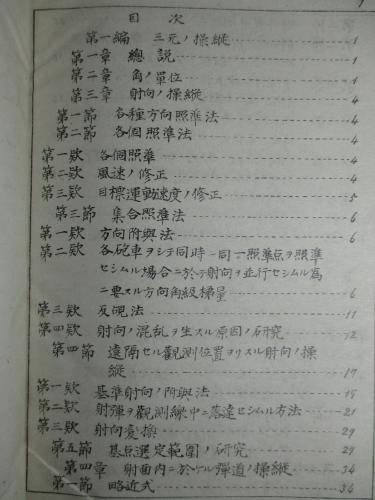 目次
第一編 三元ノ操縦 1
第一章 總説 1
第二章 角ノ單位 1
第三章 射向ノ操縦 4
第一節 各種方向照準法 4
第二節 各個照準法 4
第一欵 各個照準 4
第二欵 風速ノ修正 4
第三欵 目標運動速度ノ修正 5
第三節 集合照準法 6
第一欵 方向附與法 6
第二欵 各砲車ヲシテ同時一同一照準点ヲ照準
セシムル場合ニ於テ射向ヲ並行セシムル為
ニ要スル方向角級梯量 6
第三欵 反覘法 11
第四欵 射向ノ混乱ヲ生スル原因ノ研究 12
第四節 遠隔セル觀測位置ヨリスル射向ノ操
縦 17
第一欵 基準射向ノ附與法 18
第二欵 射彈ヲ觀測線中ニ落達セシムル方法 21
第三欵 射向変換 29
第五節 基点選定範囲ノ研究 29
第四章 射面内ニ於ケル彈道ノ操縦 34
第一節 略近式 36